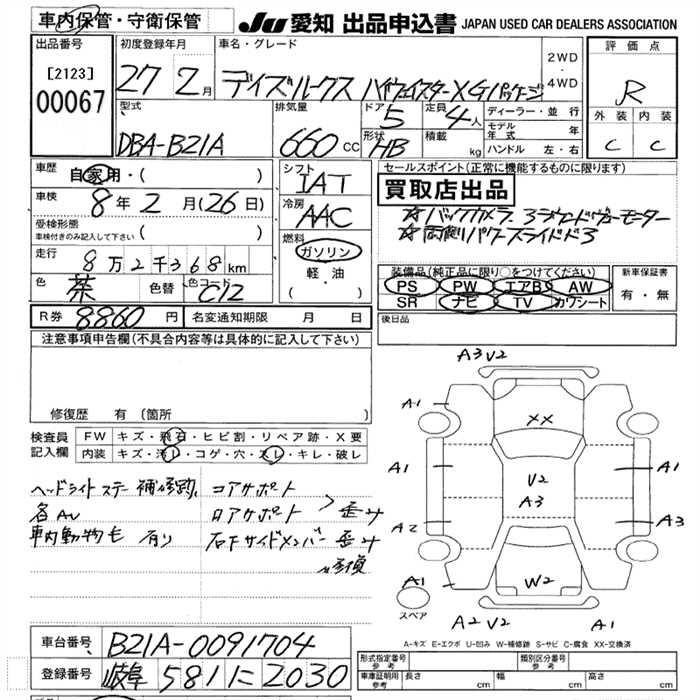 車内保管・守衛保管
JU 愛知 出品申込書 JAPAN USED CAR DEALERS ASSOCIATION
出品番号
[2123]
00067
初度登録年月
27 2月
車名・グレード
デイズルークス ハイウェイスターX Gパッケージ
2WD
・
4WD
評価点
R
外装 内装
C C
型式
DBA-B21A
排気量
660 CC
ドア 5
定員 4人
形状 HB
積載 kg
ディーラー・並行
モデル年式 年
ハンドル 左・右
車歴
自家用・( )
車検
8年 2月(26日)
受検形態
車検付きのみ記入して下さい ( )
走行
8万2千368km
色 茶 色替 色コード C12
シフト
IAT
冷房
AAC
燃料
ガソリン
・
軽・油
( )
セールスポイント(正常に機能するものに限ります)
買取店出品
☆バックカメラ
☆両側パワースライドドア
装備品(純正品に限り○をつけてください)
PS PW エアB AW
SR ナビ TV カワシート
新車保証書
有・無
後日品
R券 8860円 名変通知期限 月 日
注意事項申告欄(不具合内容等は具体的に記入して下さい)
修復歴 有 (箇所 )
検査員
記入欄
FW キズ・飛石・ヒビ割・リペア跡・X要
内装 キズ・汚レ・コゲ・穴・スレ・キレ・破レ
ヘッドライトステー 補修跡 コアサポート
各AU ロアサポート 歪み
車内動物毛 有り 右下サイドメンバー 歪み
〃修復
A3 V2
A1
XX
A1 A1
V2
A3
A2 A3
A1
W2
スペア
A2 V2 A1
A-キズ E-エクボ U-凹み W-補修跡 S-サビ C-腐食 XX-交換済
車台番号 B21A-0091704
登録番号 岐阜 581 に 2030
形式指定番号
参考
類別区分番号
参考
車庫証明用
参考
長さ cm 幅 cm 高さ cm